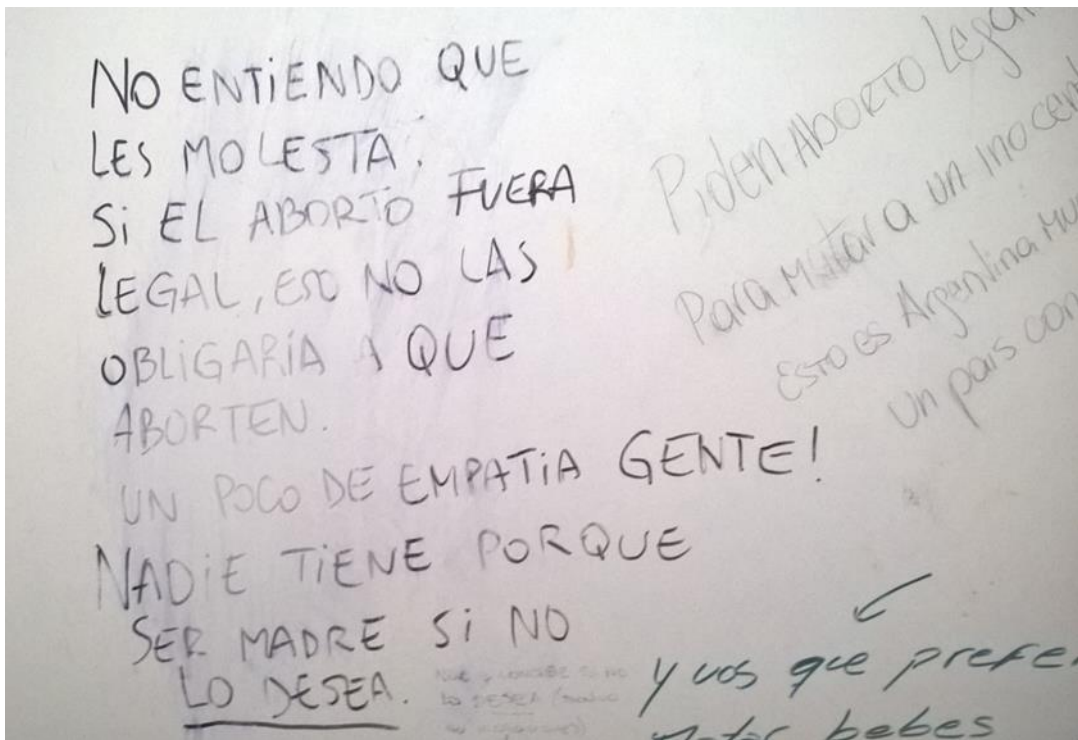 NO ENTIENDO QUE
LES MOLESTA.
Si EL ABORTO FUERA
LEGAL, ESO NO LAS
OBLIGARÍA A QUE
ABORTEN.
UN POCO DE EMPATíA GENTE!
NADiE TiENE PORQUE
SER MADRE Si NO
LO DESEA.
Piden ABORTO Legal
Para matar a un inocen
ESTO es Argentina
un país con
y vos que prefe
bebes